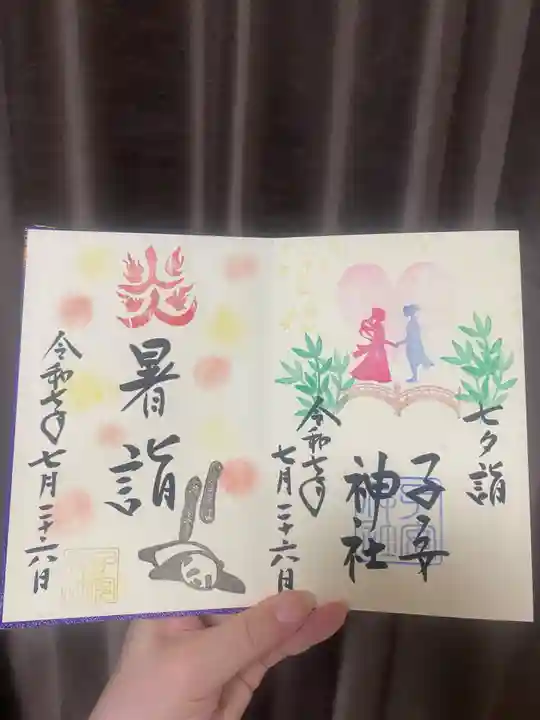 七夕詣
子安
神社
令和七年
七月二十六日
炎
暑詣
令和七年七月二十六日